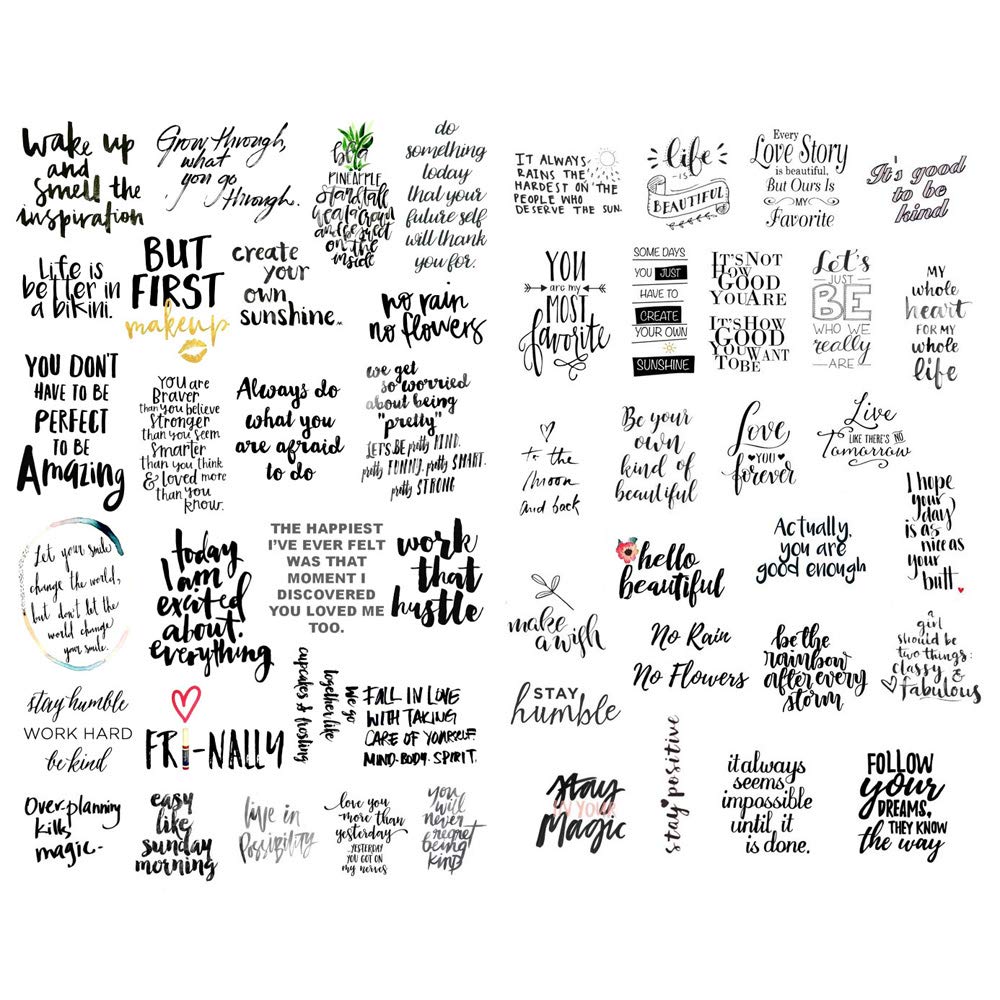 wake up
and
smell the
inspiration
Grow through,
what
you go
through.
be a
PINEAPPLE
stand tall
wear a crown
and be sweet
on the
inside
do
something
today
that your
future self
will thank
you for.
Life is
better in
a bikini.
BUT
FIRST
makeup
create
your
own
sunshine.
no rain
no flowers
YOU DON'T
HAVE TO BE
PERFECT
TO BE
Amazing
YOU are
Braver
than you believe
Stronger
than you seem
Smarter
than you think
& loved more
than you
know.
Always do
what you
are afraid
to do
we get
so worried
about being
"pretty"
LET'S BE pretty KIND.
pretty FUNNY. pretty SMART.
pretty STRONG
Let your smile
change the world,
but don't let the
world change
your smile.
today
I am
excited
about.
everything
THE HAPPIEST
I'VE EVER FELT
WAS THAT
MOMENT I
DISCOVERED
YOU LOVED ME
TOO.
work
that
hustle
stay humble
WORK HARD
be kind
FRI-NALLY
we go
together like
cupcakes & frosting
FALL IN LOVE
WITH TAKING
CARE OF YOURSELF
MIND. BODY. SPIRIT.
Over-planning
kills
magic-
easy
like
sunday
morning
live in
Possibility
love you
more than
yesterday
YESTERDAY
YOU GOT ON
my nerves
you
will
never
regret
being
kind
IT ALWAYS
RAINS THE
HARDEST ON THE
PEOPLE WHO
DESERVE THE SUN.
life
IS
BEAUTIFUL
Every
Love Story
is beautiful,
But Ours is
MY
Favorite
It's good
to be
kind
YOU
are my
MOST
favorite
SOME DAYS
YOU JUST
HAVE TO
CREATE
YOUR OWN
SUNSHINE
IT'S NOT
HOW
GOOD
YOU ARE
IT'S HOW
GOOD
YOU WANT
TO BE
Let's
JUST
BE
WHO WE
really
ARE
MY
whole
heart
FOR MY
whole
life
to the
moon
and back
Be your
own
kind of
beautiful
Love
YOU
forever
Live
LIKE THERE'S NO
Tomorrow
I hope
your
day
is as
nice as
your
butt.
make
a wish
hello
beautiful
Actually,
you are
good enough
No Rain
No Flowers
be the
rainbow
after every
storm
a girl
should be
two things:
classy &
fabulous
STAY
humble
stay
IN YOUR
Magic
stay positive
it always
seems
impossible
until it
is done.
FOLLOW
your
DREAMS,
THEY KNOW
the way